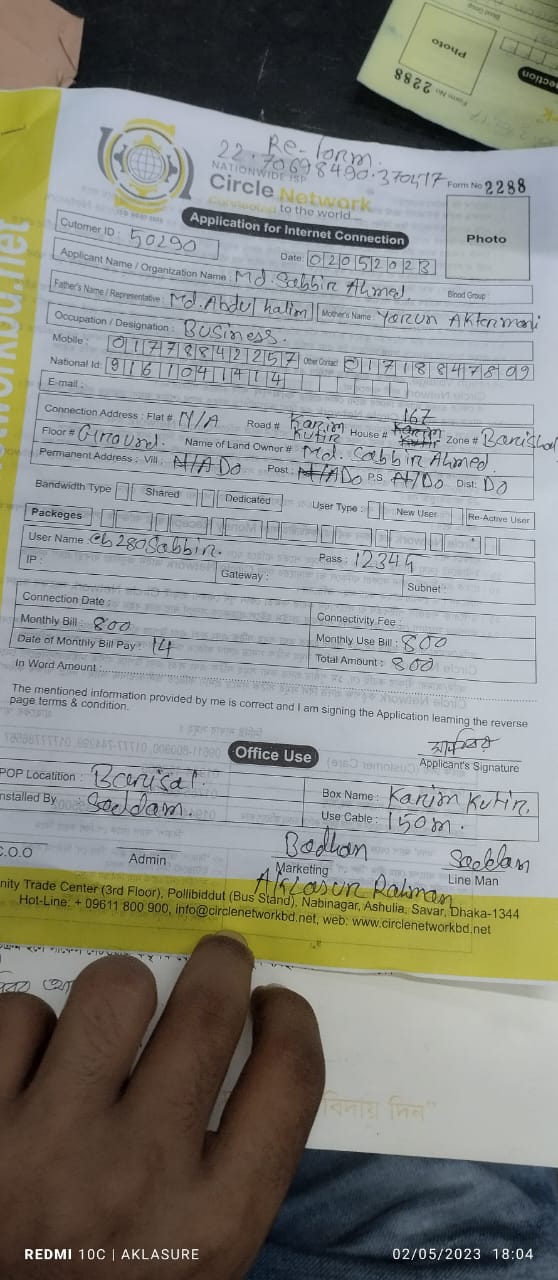 Photo
Form No 2288
Re-form
22.70698490.370417
NATIONWIDE ISP
Circle Network
Connected to the world...
Form No 2288
Application for Internet Connection
Photo
Cutomer ID : 50290
Date: 02052023
Applicant Name / Organization Name : Md. Sabbir Ahmed.
Blood Group :
Father's Name / Representative : Md. Abdul halim
Mother's Name :
Occupation / Designation : Business.
Mobile : 01778842257 Other Contact 01718847809
National Id: 9161041414
E-mail :
Connection Address : Flat # N/A Road # Karim Kutir House # 167 Zone #
Floor # Ground. Name of Land Owner # Md. Sabbir Ahmed.
Permanent Address : Vill : N/A Do Post : N/A Do P.S. Do Dist: Do
Bandwidth Type Shared Dedicated User Type : New User Re-Active User
Packeges
User Name : cb280Sabbir. Pass : 12345
IP : Gateway : Subnet :
Connection Date : Connectivity Fee :
Monthly Bill : 800 Monthly Use Bill : 800
Date of Monthly Bill Pay : 14 Total Amount : 800
In Word Amount :
The mentioned information provided by me is correct and I am signing the Application learning the reverse
page terms & condition.
Applicant's Signature
Office Use
POP Locatition : Barisal. Box Name : Karim Kutir.
nstalled By : Saddam. Use Cable : 150m.
C.O.O Admin Badhan Marketing Saddam Line Man
Aklasur Rahman
nity Trade Center (3rd Floor), Pollibiddut (Bus Stand), Nabinagar, Ashulia, Savar, Dhaka-1344
Hot-Line: + 09611 800 900, info@circlenetworkbd.net, web: www.circlenetworkbd.net
বিদায় দিন"
REDMI 10C | AKLASURE
02/05/2023 18:04